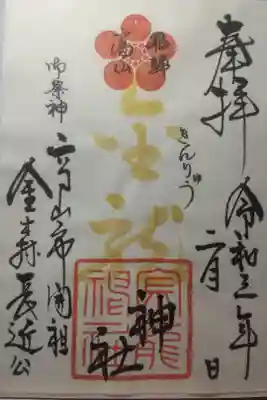 奉拝
令和三年二月 日
飛騨
高山
金龍
きんりゅう
神社
御祭神
高山市開祖
金森長近公